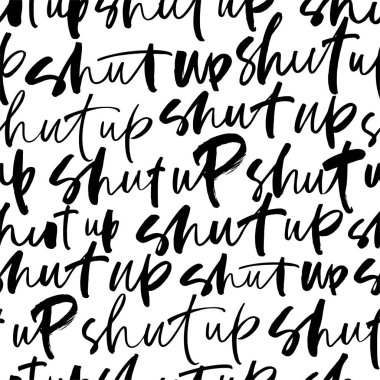 shut up
p shut up shut
hut up shut up s
up shut uP shut
hut up shut up
shut up shut up s
t uP shut up shut
t up shut up